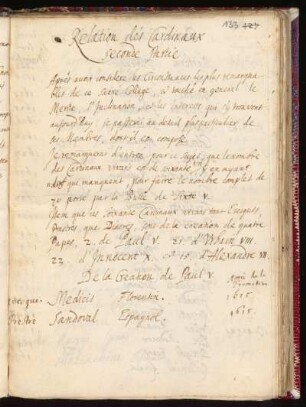 133 427
Relation des Cardinaux
Seconde Partie
Après avoir considéré les Circonstances les plus remarqua
bles de ce sacré College, et traité en general le
Merite, l'Inclination, et les interests qui s'y trouvent
aujourdhuy, je passeray au detail plus particulier de
ses Membres, dont il est composé.
Je remarqueray d'entrée, pour ce sujet, que le nombre
des Cardinaux vivans est de soixante, y en ayant
qui manquent, pour faire le nombre complet de
70 porté par la Bulle de Sixte V.
Item que ces soixante Cardinaux vivans sont Evesques,
Prestres, que Diacres, sont de la creation de quatre
Papes, 2. de Paul V. 21. d'Urbain VIII.
22. d'Innocent X. et 15. d'Alexandre VII
De la Creation de Paul V.
Medicis Florentin. 1615.
Prestre Sandoval Espagnol. 1615.